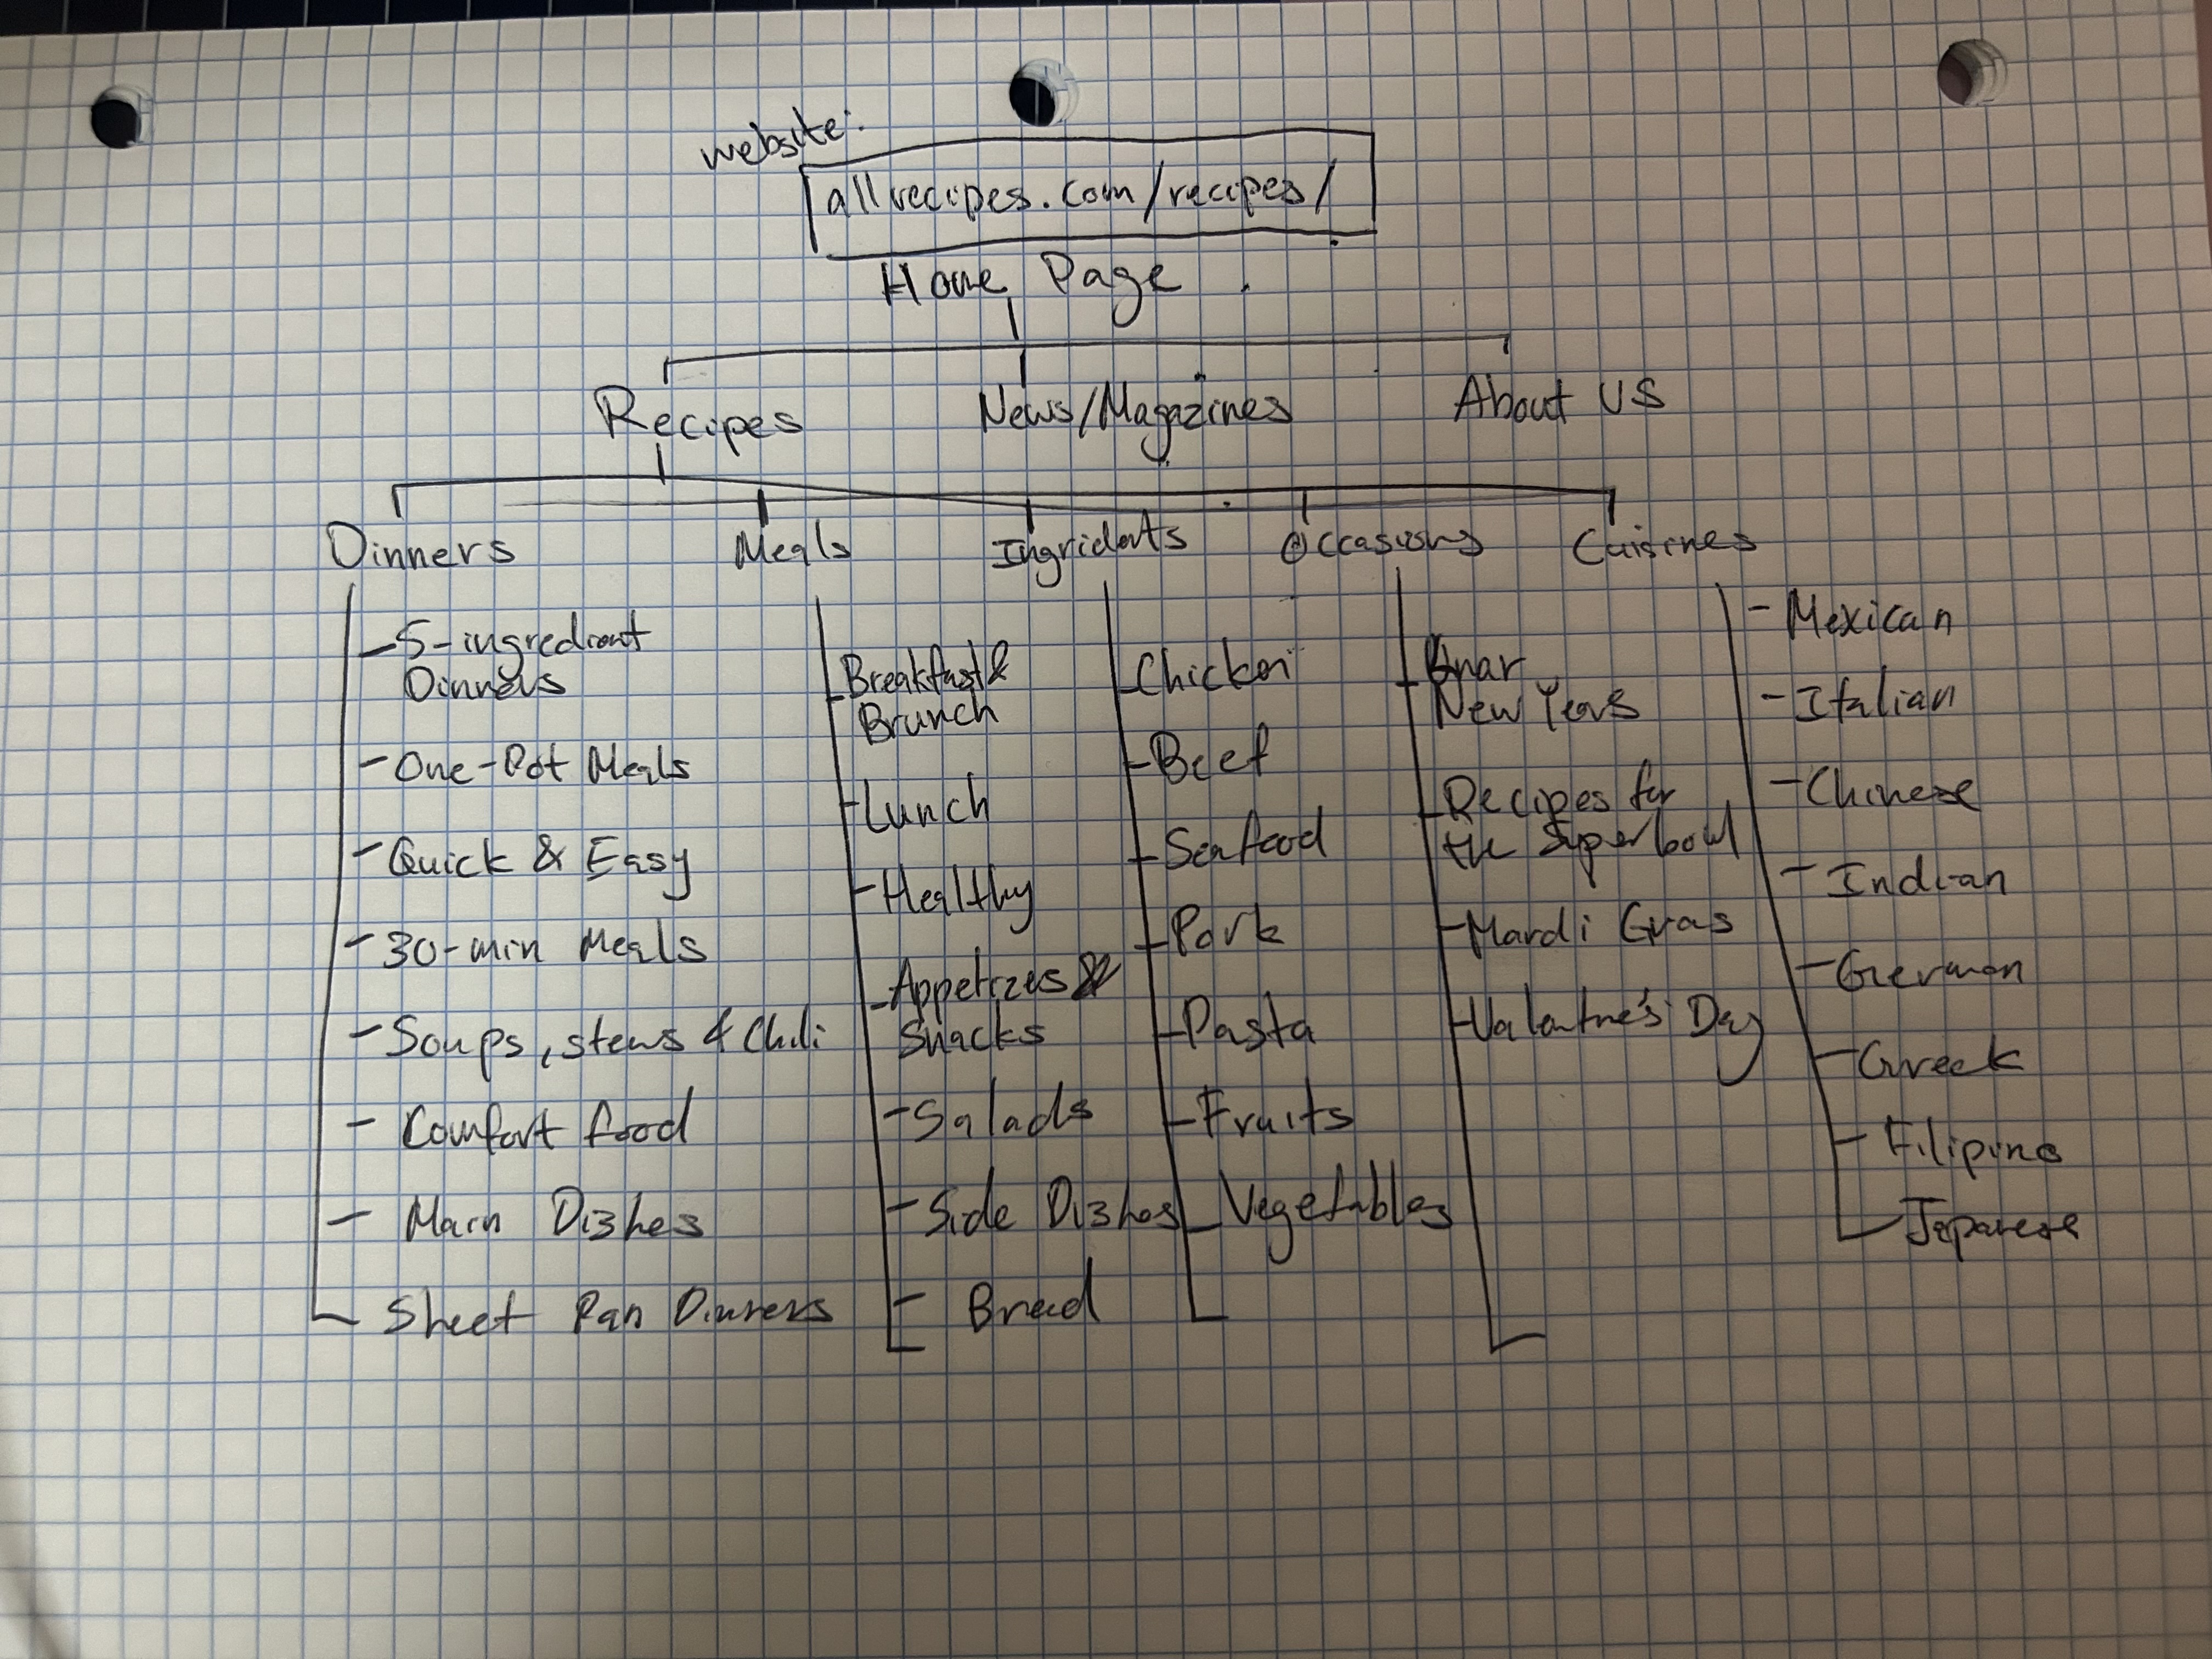 website:
allrecipes.com/recipes/
Home Page
Recipes
News/Magazines
About US
Dinners
Meals
Ingridents
Occasions
Cuisines
- 5-ingredient
Dinners
- One-Pot Meals
- Quick & Easy
- 30-min Meals
- Soups, stews & Chili
- Comfort food
- Main Dishes
- Sheet Pan Dinners
- Breakfast &
Brunch
- Lunch
- Healthy
- Appetizers &
Snacks
- Salads
- Side Dishes
- Bread
- Chicken
- Beef
- Seafood
- Pork
- Pasta
- Fruits
- Vegetables
New Years
- Recipes for
the Superbowl
- Mardi Gras
- Valentine's Day
- Mexican
- Italian
- Chinese
- Indian
- German
- Greek
- Filipino
- Japanese